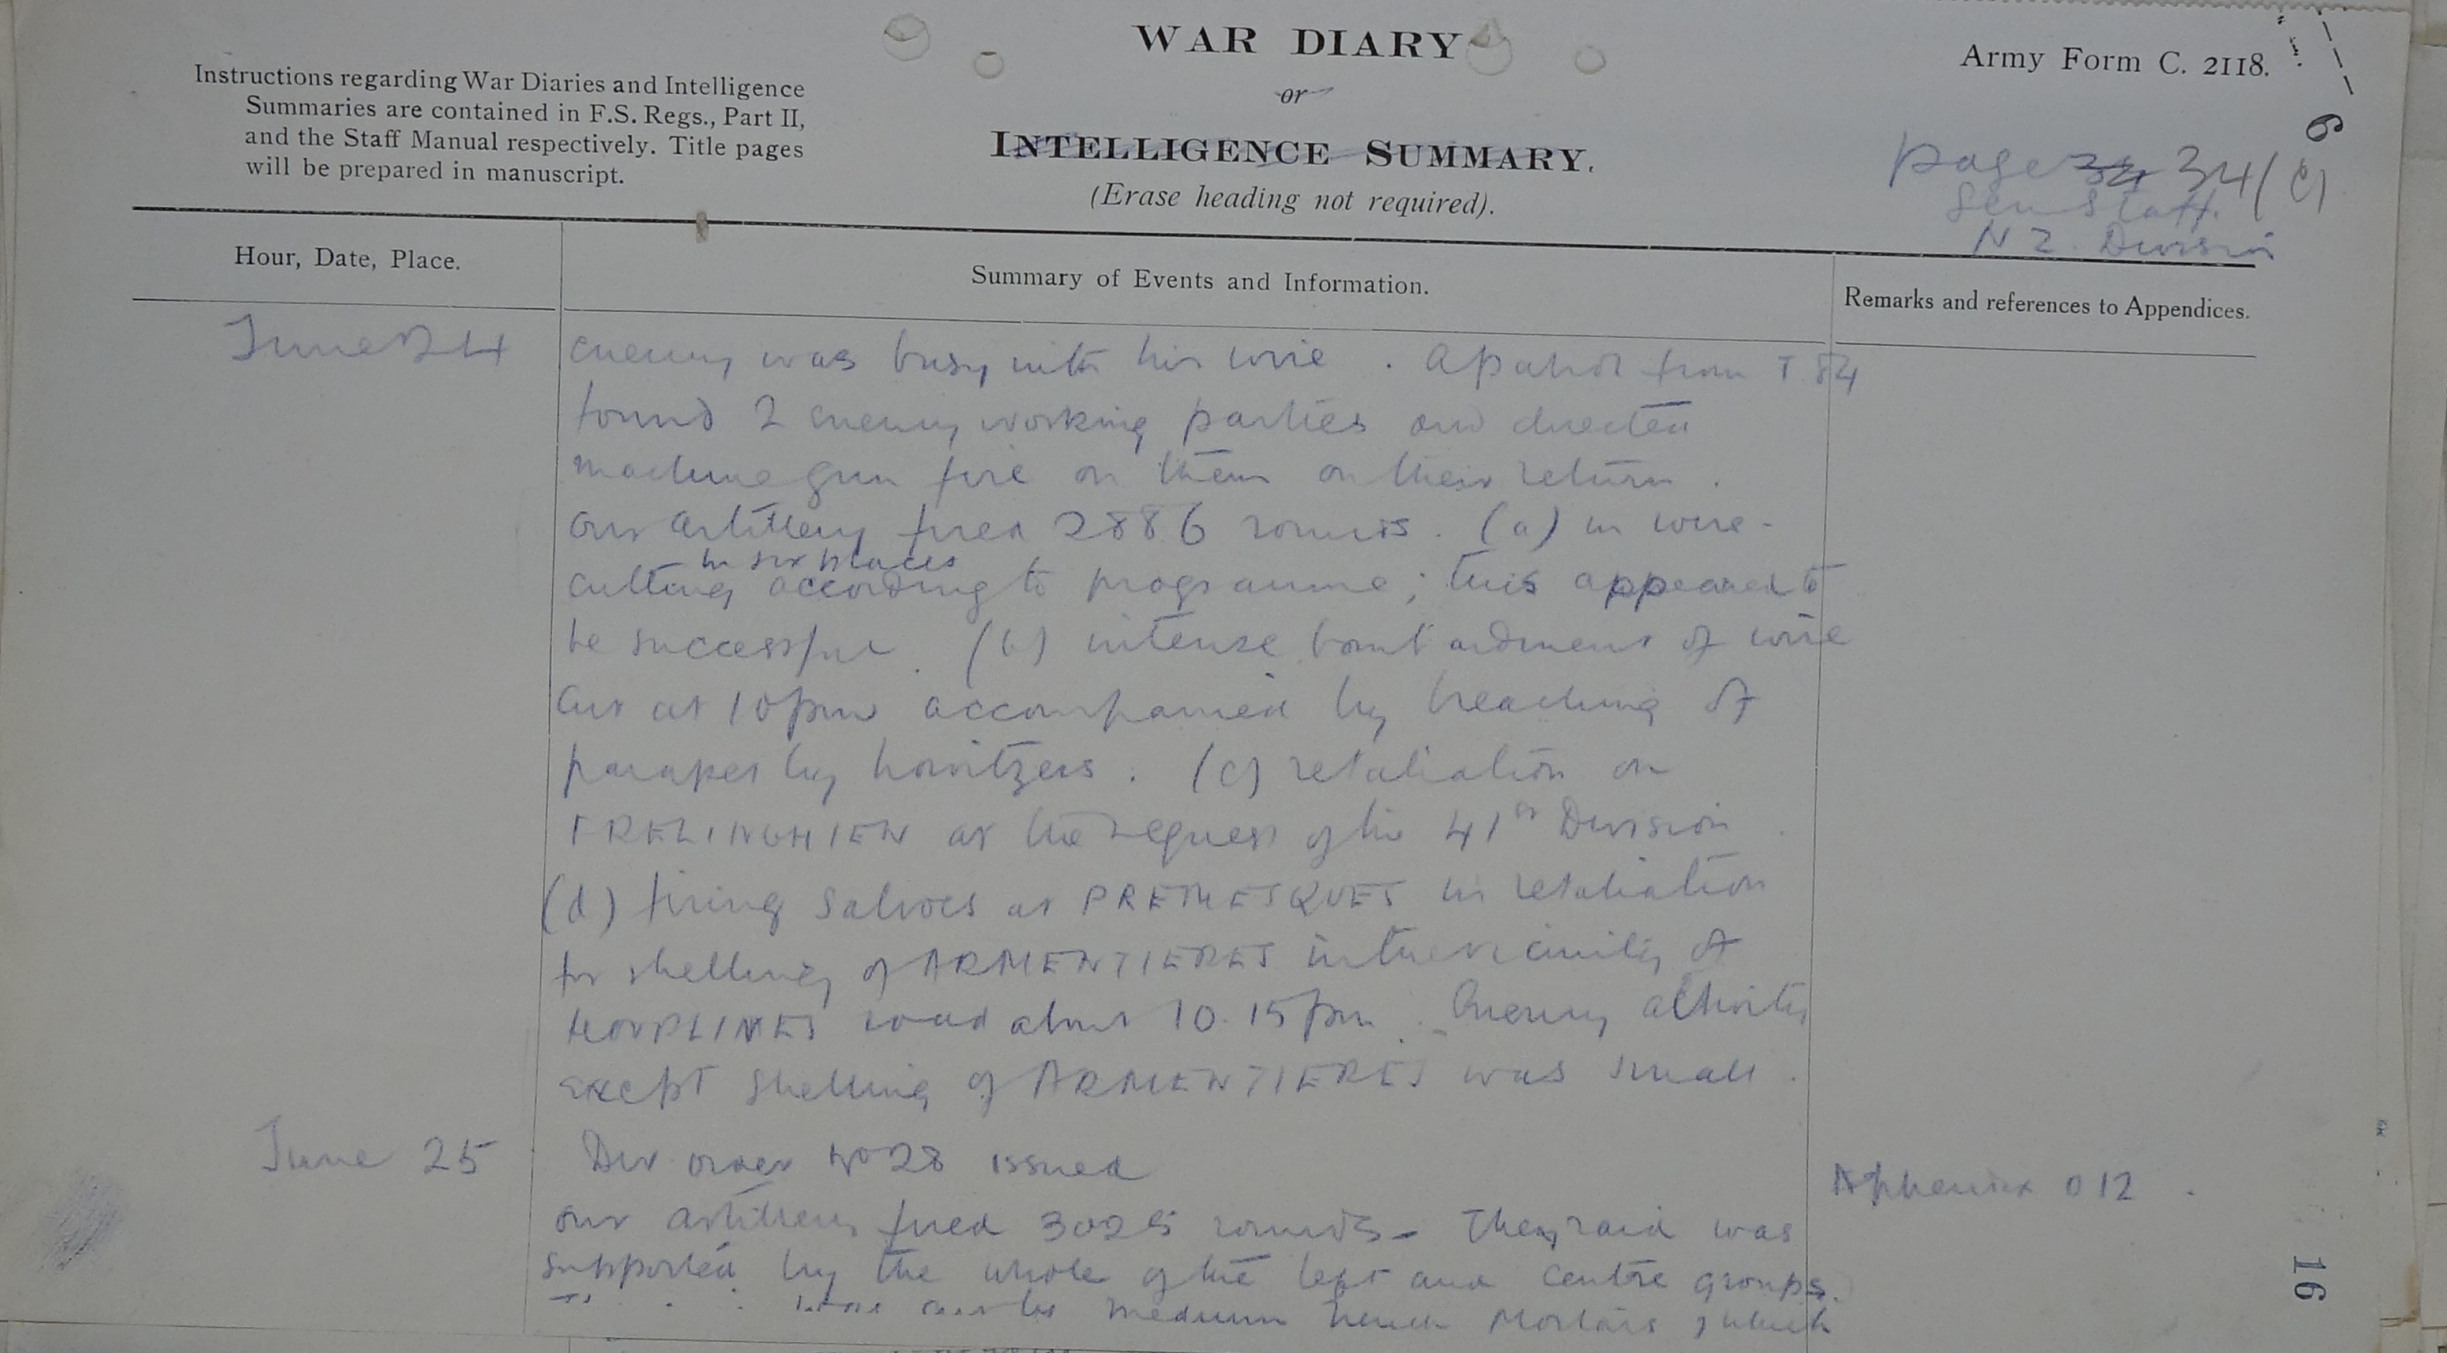 WAR DIARY
or
INTELLIGENCE SUMMARY.
(Erase heading not required).
Instructions regarding War Diaries and Intelligence
Summaries are contained in F.S. Regs., Part II,
and the Staff Manual respectively. Title pages
will be prepared in manuscript.
Army Form C. 2118.
6
page 34 34(c)
Gen Staff.
N Z. Division
Hour, Date, Place.
Summary of Events and Information.
Remarks and references to Appendices.
June 24
enemy was busy with his wire. A patrol from T 84
found 2 enemy working parties and directed
machine gun fire on them on their return.
Our artillery fired 2886 rounds. (a) in wire-
in six places
cutting according to programme; this appeared to
be successful. (b) intense bombardment of wire
cut at 10 pm accompanied by breaching of
parapet by howitzers. (c) retaliation on
FRELINGHIEN at the request of the 41st Division.
(d) firing salvoes at PREMESQUES in retaliation
for shelling of ARMENTIERES in the vicinity of
HOUPLINES road about 10.15 pm. Enemy activity
except shelling of ARMENTIERES was small.
June 25
Div order No 28 issued
Appendix 012.
Our artillery fired 3025 rounds- The raid was
supported by the whole of the left and centre groups.
wire cut by medium trench mortars, which
16